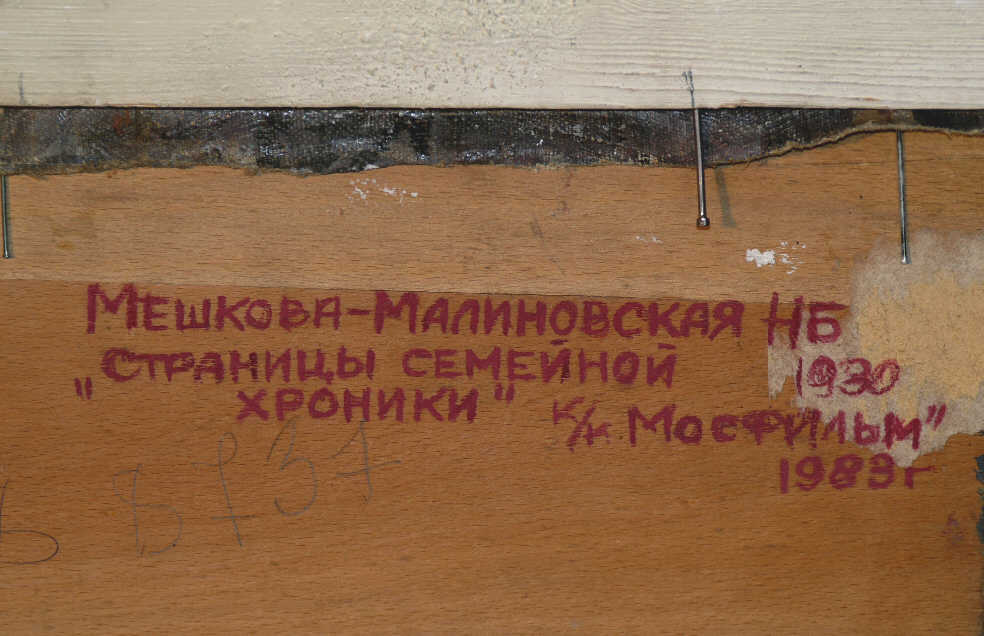 МЕШКОВА-МАЛИНОВСКАЯ НБ
"СТРАНИЦЫ СЕМЕЙНОЙ 1930
ХРОНИКИ" К/К МОСФИЛЬМ"
1983г